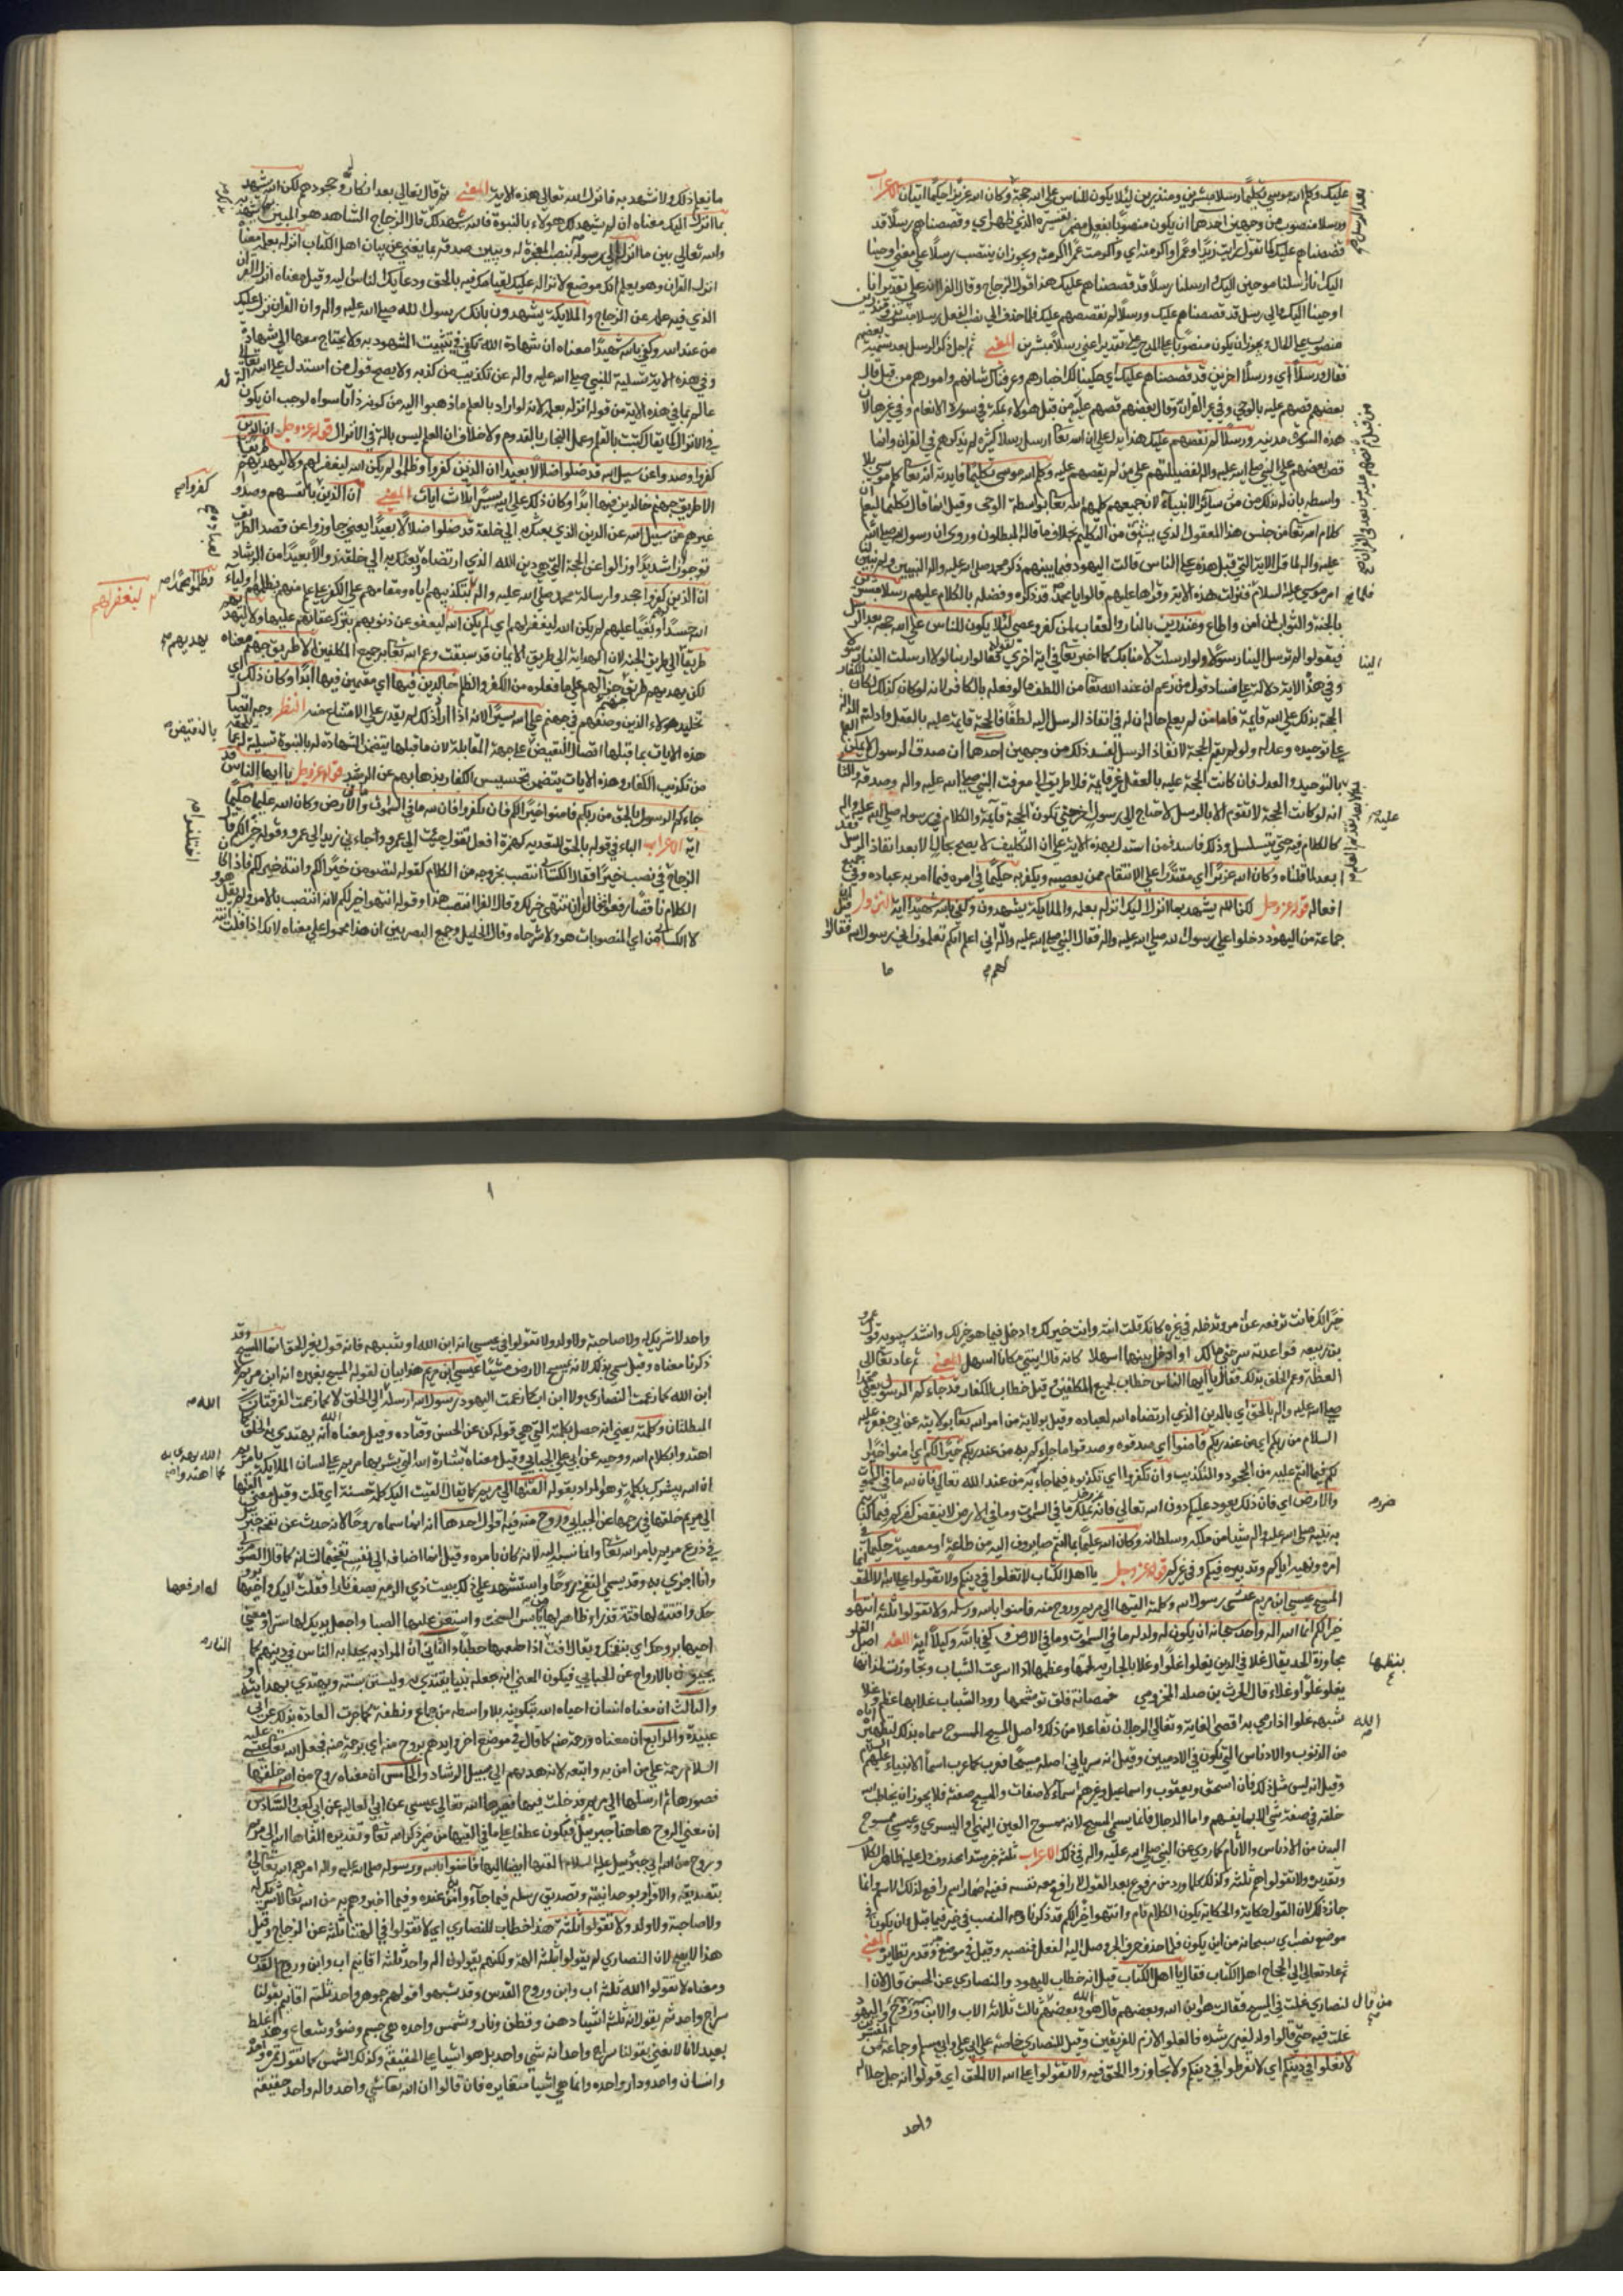 عليك وكلم الله موسى تكليما رسلا مبشرين ومنذرين لئلا يكون للناس على الله حجة وكان الله عزيزا حكيما آيتان الاعراب
ورسلا منصوب من وجهين احدهما ان يكون منصوبا بفعل مضمر يفسره الذي ظهر اي وقصصنا هم رسلا قد
قصصناهم عليك كما تقول رايت زيدا وعمرا اكرمته اي واكرمت عمرا اكرمته ويجوز ان ينتصب رسلا على معنى اوحينا
اليك انا ارسلنا موحين اليك وارسلنا رسلا قد قصصناهم عليك هذا قول الزجاج وقال الفراء انه على تقدير انا
اوحينا اليك والى رسل قد قصصناهم عليك ورسلا لم نقصصهم عليك فلما حذف الى نصب الفعل رسلا مبشرين ومنذرين
منصوب على الحال ويجوز ان يكون منصوبا على المدح على تقدير اعني رسلا مبشرين المعنى ثم اجل ذكر الرسل بعد تسمية بعضهم
فقال ورسلا اي ورسلا اخرين قد قصصناهم عليك اي حكينا لك اخبارهم وعرفناك شانهم وامورهم من قبل قال
بعضهم قصهم عليه بالوحي في غير القران وقال بعضهم قصهم عليه من قبل هولاء بمكة في سورة الانعام وفي غيرها لان
هذه السورة مدنية ورسلا لم نقصصهم عليك هذا يدل على ان الله تعا ارسل رسلا كثيرة لم يذكرهم في القران وانما
قص بعضهم على النبي صلى الله عليه واله لفضيلتهم على من لم يقصهم عليه وكلم الله موسى تكليما فايدته انه تعا كلم موسى بلا
واسطة بان له بذلك من بين سائر الانبياء لان جميعهم كلمهم الله تعا بواسطة الوحي وقيل انما قال تكليما ليعلم ان
كلام الله تعا من جنس هذا المعقول الذي يشتق من التكليم بخلاف ما قاله المبطلون وروي ان رسول الله صلى الله
عليه واله لما قرا الاية التي قبل هذه على الناس قالت اليهود فيما بينهم ذكر محمد صلى الله عليه واله النبيين ولم يبين لنا
امر موسى عليه السلام فنزلت هذه الاية وقراها عليهم قالوا ان محمدا قد ذكره وفضله بالكلام عليهم رسلا مبشرين
بالجنة والثواب لمن امن واطاع ومنذرين بالنار والعقاب لمن كفر وعصى لئلا يكون للناس على الله حجة بعد الرسل
فيقولوا لم ترسل الينا رسولا ولو ارسلت لامنا بك كما اخبر تعا في اية اخرى بقوله لقالوا ربنا لولا ارسلت الينا رسولا
وفي هذه الاية دلالة على فساد قول من زعم ان عند الله تعا من اللطف ما لو فعله بالكافر لامن لانه لو كان كذلك لكان للكفار
الحجة بذلك على الله قايمة فاما من لم يعلم حاله ان له في انفاذ الرسل اليه لطفا فالحجة قايمة عليه بالعقل وادلته الدالة
على توحيده وعدله ولو لم يقم الحجة الا بانفاذ الرسل لفسد ذلك من وجهين احدهما ان صدق الرسول لا يمكن العلم
به بالتوحيد والعدل فان كانت الحجة عليه بالعقل غير قايمة فلا طريق الى معرفة النبي صلى الله عليه واله وصدقه والثاني
انه لو كانت الحجة لا تقوم الا بالرسل لاحتاج الى رسول اخر حتى تكون الحجة قايمة والكلام في رسوله صلى الله عليه واله
كالكلام فيه حتى يتسلسل وذلك فاسد فمن استدل بهذه الاية على ان التكليف لا يصح بحال الا بعد انفاذ الرسل فقد
ابعد لما قلناه وكان الله عزيزا اي مقتدرا على الانتقام ممن يعصيه ويكفر به حكيما في امره فيما امر به عباده وفي جميع
افعاله قوله عز وجل لكن الله يشهد بما انزل اليك انزله بعلمه والملايكة يشهدون وكفى بالله شهيدا اية النزول قيل ان
جماعة من اليهود دخلوا على رسول الله صلى الله عليه واله فقال النبي صلى الله عليه واله اني اعلم انكم تعلمون اني رسول الله فقالوا
ما
ما نعلم ذلك ولا نشهد به فانزل الله تعالى هذه الاية المعنى ثم قال تعالى بعد انكار وجحودهم لكن الله يشهد
بما انزل اليك معناه ان لم يشهد لك هولاء بالنبوة فالله يشهد لك قال الزجاج الشاهد هو المبين لما شهد به
والله تعالى بين ما انزل الى رسوله بنصب المعجزة له ويبين صدقه بما يغني عن بيان اهل الكتاب انزله بعلمه معناه
انزل القران وهو يعلم انك موضع لانزاله عليك لقيامك فيه بالحق ودعائك الناس اليه وقيل معناه انزل القران
الذي فيه علمه عن الزجاج والملايكة يشهدون بانك رسول الله صلى الله عليه واله وان القران نزل عليك
من عند الله وكفى بالله شهيدا معناه ان شهادة الله تكفي في تثبيت المشهود به ولا يحتاج معها الى شهادة
وفي هذه الاية تسلية للنبي صلى الله عليه واله عن تكذيب من كذبه ولا يصح قول من استدل على ان الله تعالى
عالم بما في هذه الاية من قوله انزله بعلمه لانه لو اراد بالعلم ما ذهبوا اليه من كونه ذاتا سواه لوجب ان يكون الة له
في الانزال كما يقال كتبت بالقلم وعمل النجار بالقدوم ولا خلاف ان العلم ليس بالة في الانزال قوله عز وجل ان الذين
كفروا وصدوا عن سبيل الله قد ضلوا ضلالا بعيدا ان الذين كفروا وظلموا لم يكن الله ليغفر لهم ولا ليهديهم طريقا
الا طريق جهنم خالدين فيها ابدا وكان ذلك على الله يسيرا ثلاث ايات المعنى ان الذين بانفسهم وصدوا
غيرهم عن سبيل الله عن الدين الذي بعثك به الى خلقه قد ضلوا ضلالا بعيدا يعني جاوزوا عن قصد الطريق
ان الذين كفروا جحدوا رسالة محمد صلى الله عليه واله بتكذيبهم اياه ومقامهم على الكفر على علم منهم بظلمهم اولياء
الله حسدا وبغيا عليهم لم يكن الله ليغفر لهم اي لم يكن الله ليعفو عن ذنوبهم بترك عقابهم عليها ولا ليهديهم
طريقا الى طريق الجنة لان الهداية الى طريق الايمان قد سبقت وعم الله تعا بر جميع المكلفين الا طريق جهنم معناه
لكن يهديهم طريق جهنم جزاء لهم على ما فعلوه من الكفر والظلم خالدين فيها اي مقيمين فيها ابدا وكان ذلك اي
تخليد هولاء الذين وصفهم في جهنم على الله يسيرا لانه اذا اراد ذلك لم يقدر على الامتناع منه النظم وجه اتصال
هذه الايات بما قبلها اتصال النقيض على جهة المقابلة لان ما قبلها يتضمن الشهادة له بالنبوة تسلية له عما لحقه
من تكذيب الكفار وهذه الايات يتضمن تحسيس الكفار بذهابهم عن الرشد قوله عز وجل يا ايها الناس قد
جاءكم الرسول بالحق من ربكم فامنوا خيرا لكم فان تكفروا فان لله ما في السموات والارض وكان الله عليما حكيما
اية الاعراب الباء في قوله بالحق للتعدية كهمزة افعل تقول جئت الى عمرو واجاءني زيد الى عمرو وقوله خيرا لكم قال
الزجاج في نصب خيرا فقال الكسائي انتصب بخروجه من الكلام كقوله لتقومن خيرا لكم وانته خيرا لك فاذا كان
الكلام ناقصا رفعوا فقالوا ان تنتهي خير لك وقال الفراء انتصب هذا وقوله انتهوا خيرا لكم لانه انتصب بالامر ولم يقل هو
لا الكسائي من اي المنصوبات هو ولا شرحاه وقال الخليل وجميع البصريين ان هذا محمول على معناه لانك اذا قلت انته
خيرا لك فانت تدفعه عن امر وتدخله في غيره كانك قلت انته وايت خيرا لك وادخل فيما هو خير لك وانشد سيبويه قول عمرو
بن ربيعة فواعديه سرحتي مالك او الربى بينهما اسهلا كانه قال ايتي مكانا اسهل المعنى ثم عاد تعالى الى
العظة وعم الخلق بذلك فقال يا ايها الناس خطاب لجميع المكلفين وقيل خطاب للكفار قد جاءكم الرسول يعني محمدا
صلى الله عليه واله بالحق اي بالدين الذي ارتضاه الله لعباده وقيل بولاية من امر الله تعا بولايته عن ابي جعفر عليه
السلام من ربكم اي من عند ربكم فامنوا اي صدقوه وصدقوا ما جاءكم به من عند ربكم خيرا لكم اي امنوا خيرا
لكم فيما انتم عليه من الجحود والتكذيب وان تكفروا اي تكذبوه فيما جاءكم به من عند الله تعالى فان لله ما في السموات
والارض اي فان ذلك يعود عليكم دون الله تعالى فانه يملك ما في السموات وما في الارض لا ينقص كفركم فيما كذبتم
به نبيه صلى الله عليه واله شيئا من ملكه وسلطانه وكان الله عليما بما انتم صايرون اليه من طاعته او معصيته حكيما في
امره ونهيه اياكم وتدبيره فيكم وفي غيركم قوله عز وجل يا اهل الكتاب لا تغلوا في دينكم ولا تقولوا على الله الا الحق انما
المسيح عيسى ابن مريم رسول الله وكلمته القيها الى مريم وروح منه فامنوا بالله ورسله ولا تقولوا ثلثة انتهوا
خيرا لكم انما الله اله واحد سبحانه ان يكون له ولد له ما في السموات وما في الارض وكفى بالله وكيلا اية اللغة اصل الغلو
مجاوزة الحد يقال غلا في الدين يغلو غلوا وغلا بالجارية لحمها وعظمها اذا اسرعت الشباب وتجاوزت لداتها
يغلو غلوا وغلاء قال الحرث بن خالد المخزومي خمصانة قلق موشحها رود الشباب غلا بها عظم وغلا
بسهمه غلوا اذا رمى به اقصى الغاية وتغالى الرجلان تفاعلا من ذلك واصل المسيح الممسوح سماه بذلك لتطهيره اياه
من الذنوب والادناس التي تكون في الادميين وقيل انه سرياني اصله مشيحا فعرب كما عرب اسماء الانبياء عليهم السلام
وقيل انه ليس مثل ذلك فان اسحق ويعقوب واسماعيل وغيرهم اسماء لا صفات والمسيح صفة فلا يجوز ان يخاطب الله
خلقه في صفة شي الا بما يفهم واما الدجال فانما يسمى المسيح لانه ممسوح العين اليمنى او اليسرى وعيسى ممسوح
البدن من الادناس والاثام كما روي عن النبي صلى الله عليه واله في ذلك الاعراب ثلثة خبر مبتدا محذوف دل عليه ظاهر الكلام
وتقديره ولا تقولوا هم ثلثة وكذلك كلما ورد من مرفوع بعد القول لا رافع معه نفسه ففيه اضمار اسم رافع لذلك الاسم وانما
جاز ذلك لان القول حكاية والحكاية يكون الكلام تام وانتهوا خيرا لكم قد ذكرنا وجه النصب في خير فيما قبل وان يكون في
موضع نصب اي سبحانه من ان يكون فلما حذف حرف الجر وصل اليه الفعل فنصبه وقيل في موضع جر وقد مر نظايره المعنى
ثم عاد تعالى الى الحجاج اهل الكتاب فقال يا اهل الكتاب قيل انه خطاب لليهود والنصارى عن الحسن قال لان ا
لنصارى غلت في المسيح فقالت هو ابن الله وبعضهم قال هو الله وبعضهم ثالث ثلاثة الاب والابن وروح القدس واليهود
غلت فيه حتى قالوا ولد لغير رشده فالغلو لازم للفريقين وقيل للنصارى خاصة عن ابي علي وابي مسلم وجماعة من المفسرين
لا تغلوا في دينكم اي لا تفرطوا في دينكم ولا تجاوزوا الحق فيه ولا تقولوا على الله الا الحق اي قولوا انه جل جلاله
واحد
واحد لا شريك له ولا صاحبة ولا ولد ولا تقولوا في عيسى انه ابن الله او شبهه فانه قول بغير الحق انما المسيح وقد
ذكرنا معناه وقيل سمي بذلك لانه يمسح الارض مشيا عيسى ابن مريم هذا بيان لقوله المسيح يعني انه ابن مريم لا
ابن الله كما زعمت النصارى ولا ابن اب كما زعمت اليهود رسول الله ارسله الى الخلق لا كما زعمت الفرقتان
المبطلتان وكلمته يعني انه حصل بكلمته التي هي قوله كن عن الحسن وقتادة وقيل معناه انه يهتدي به الخلق كما
اهتدوا بكلام الله ووحيه عن ابي علي الجبائي وقيل معناه بشارة الله التي بشر بها مريم على لسان الملائكة يا مريم
ان الله يبشرك بكلمة وهو المراد بقوله القيها الى مريم كما يقال القيت اليك كلمة حسنة اي قلت وقيل معنى القيها
الى مريم خلقها في رحمها عن الجبائي وروح منه فيه اقوال احدها انه انما سماه روحا لانه حدث عن نفخة جبرئيل
في درع مريم بامر الله تعا وانما نسبه اليه لانه كان بامره وقيل انما اضافه الى نفسه تفخيما لشانه كما قال الصوم لي
وانا اجزي به وقد يسمى النفخ روحا واستشهد على ذلك ببيت ذي الرمة يصف نارا فقلت اليك واحيها بروحك
واقتته لها قيتة قدرا وظاهر لها من يابس السخت واستعن عليها الصبا واجعل يديك لها سترا ومعنى
احيها بروحك اي بنفخك ويقال اقت اذا اطعمها حطبا والثاني ان المراد به يحيا به الناس في دينهم كما
يحيون بالارواح عن الجبائي فيكون المعنى انه جعله نبيا يقتدى به وليستن بسنته ويهتدي بهداه
والثالث ان معناه انسان احياه الله بتكوينه بلا واسطة من جماع ونطفة كما جرت العادة بذلك عن ابي
عبيدة والرابع ان معناه ورحمة منه كما قال في موضع اخر وايدهم بروح منه اي برحمة منه فجعل الله تعا عيسى عليه
السلام رحمة على من امن به واتبعه لانه هديهم الى سبيل الرشاد والخامس ان معناه روح من الله خلقها
فصورها ثم ارسلها الى مريم فدخلت فيها فصيرها الله تعالى عيسى عن ابي العالية عن ابي كعب والسادس
ان معنى الروح هاهنا جبرئيل فيكون عطفا على ما في القيها من ضمير ذكر الله تعا وتقديره القاها الله الى مريم
وروح من الله اي جبرئيل عليه السلام القاها ايضا اليها فامنوا بالله ورسوله صلى الله عليه واله امرهم الله تعالى
بتصديقه والاقرار بوحدانيته وتصديق رسله فيما جاؤا به من عنده وفيما اخبروهم به من الله تعا لا شريك له
ولا صاحبة ولا ولد ولا تقولوا ثلثة هذا خطاب للنصارى اي لا تقولوا الهتنا ثلثة عن الزجاج وقيل
هذا لا يصح لان النصارى لم يقولوا بثلثة الهة ولكنهم يقولون اله واحد ثلثة اقانيم اب وابن وروح القدس
ومعناه لا تقولوا الله ثلثة اب وابن وروح القدس وقد شبهوا قولهم جوهر واحد ثلثة اقانيم بقولنا
سراج واحد ثم يقول انه ثلثة اشياء دهن وقطن ونار وشمس واحدة هي جسم وضوء وشعاع وهذا غلط
بعيد لانا لا نعني بقولنا سراج واحد انه شي واحد بل هو اشياء على الحقيقة وكذلك الشمس كما تقول عشرة واحدة
وانسان واحد ودار واحدة وانما هي اشياء متغايرة فان قالوا ان الله تعا شي واحد واله واحد حقيقة